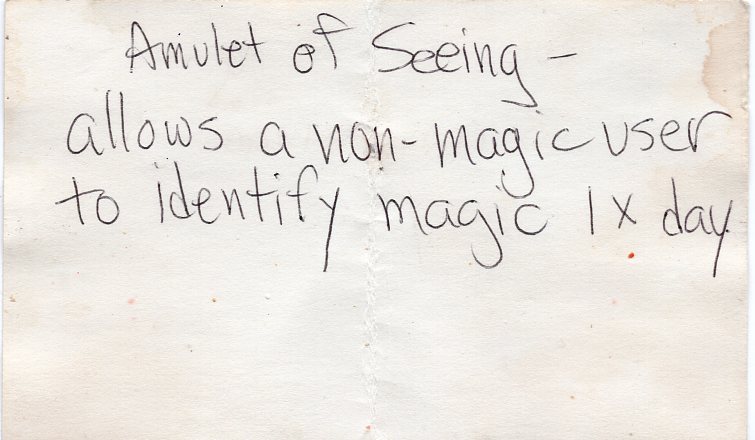 Amulet of Seeing -
allows a non-magic user
to identify magic 1x day.